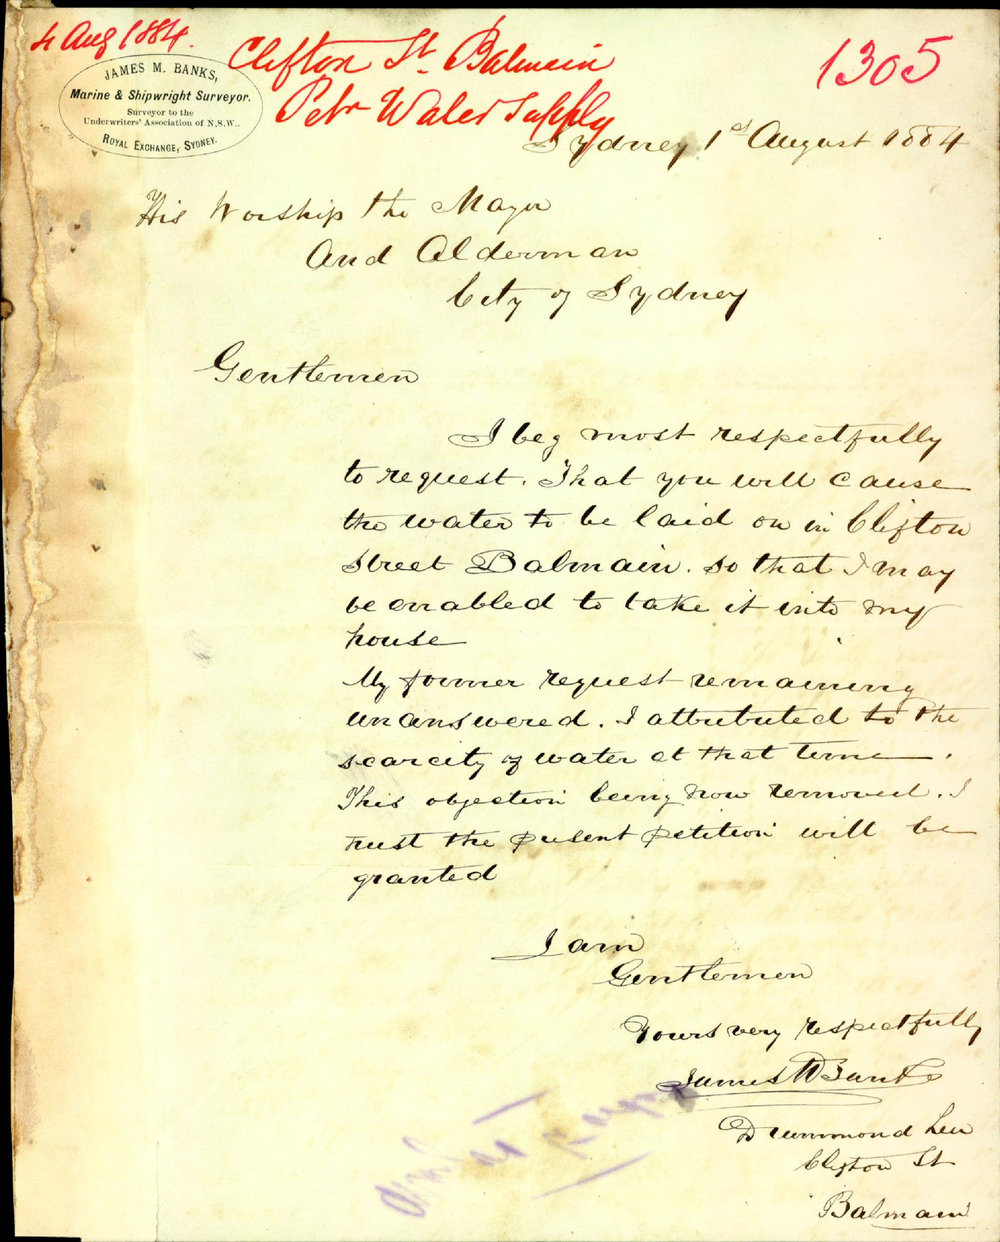 4 Aug 1884.
Clifton St. Balmain
1305
JAMES M. BANKS,
Marine & Shipwright Surveyor.
Surveyor to the
Underwriters' Association of N.S.W.,
ROYAL EXCHANGE, SYDNEY.
Petn Water Supply
Sydney 1st August 1884
His Worship the Mayor
And Alderman
City of Sydney
Gentlemen
I beg most respectfully
to request. That you will cause
the water to be laid on in Clifton
Street Balmain. so that I may
be enabled to take it into my
house
My former request remaining
unanswered. I attributed to the
scarcity of water at that time.
This objection being now removed. I
trust the present petition will be
granted
I am
Gentlemen
Yours very respectfully
James M Banks
Drummond
Clifton St
Balmain